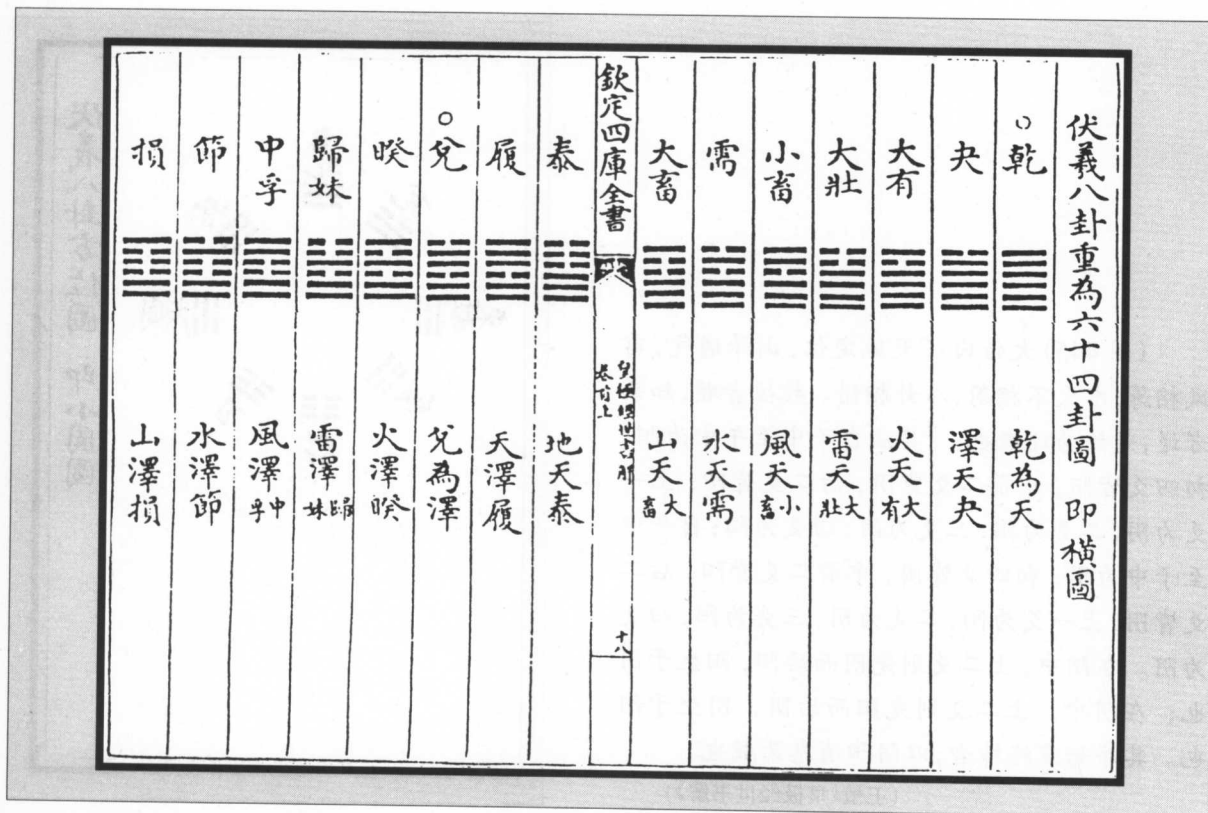 伏羲八卦重為六十四卦圖 即橫圖
○乾 乾為天
夬 澤天夬
大有 火天大有
大壯 雷天大壯
小畜 風天小畜
需 水天需
大畜 山天大畜
欽定四庫全書 皇極經世書解 卷首上 十八
泰 地天泰
履 天澤履
○兌 兌為澤
睽 火澤睽
歸妹 雷澤歸妹
中孚 風澤中孚
節 水澤節
損 山澤損